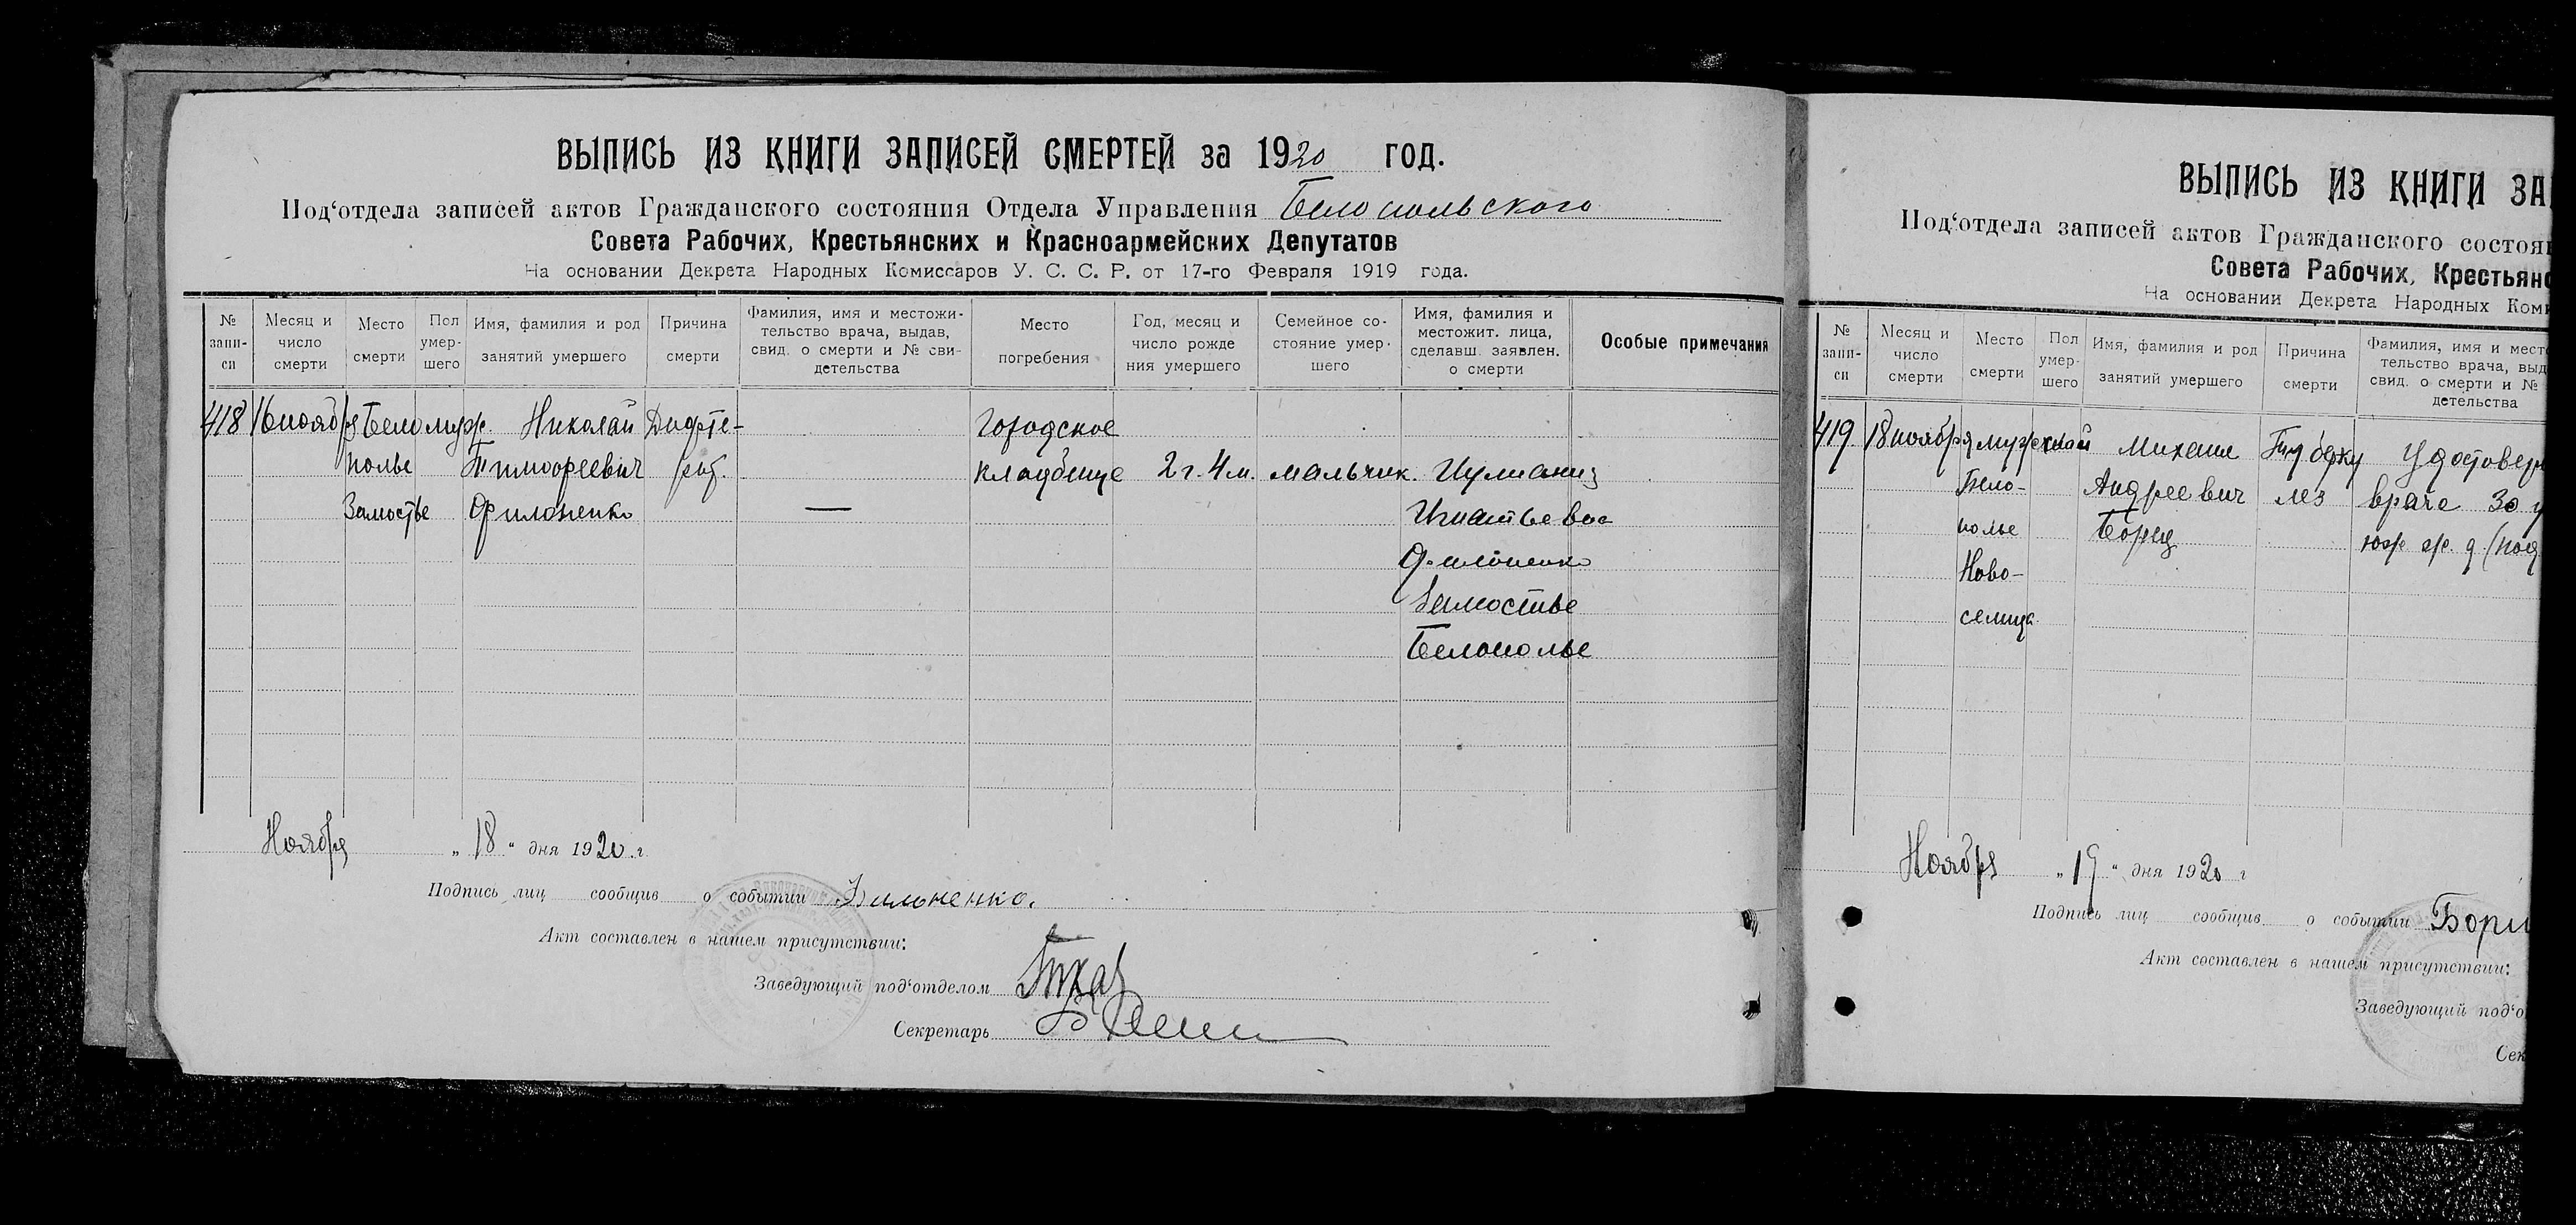 ВЫПИСЬ ИЗ КНИГИ ЗАПИСЕЙ СМЕРТЕЙ за 1920 год.
Под‘отдела записей актов Гражданского состояния Отдела Управления Белопольского
Совета Рабочих, Крестьянских и Красноармейских Депутатов
На основании Декрета Народных Комиссаров У. С. С. Р. от 17-го Февраля 1919 года.
№ запи- си
Месяц и число смерти
Место смерти
Пол умер- шего
Имя, фамилия и род занятий умершего
Причина смерти
Фамилия, имя и местожи- тельство врача, выдав, свид. о смерти и № сви- детельства
Место погребения
Год, месяц и число рожде ния умершего
Семейное со- стояние умер- шего
Имя, фамилия и местожит. лица, сделавш. заявлен. о смерти
Особые примечания
418 16 ноября Бело муж. Николай Дифте- Городское
полье Тимофеевич рит. кладбище 2 г. 4 м. мальчик.
Замостье Филоненко — Игнатьевна
Филоненко
Замостье
Белополье
Ноября „ 18 “ дня 1920 г
Подпись лиц сообщив о событии Филоненко.
Акт составлен в нашем присутствии:
Заведующий под‘отделом
Секретарь
ВЫПИСЬ ИЗ КНИГИ ЗА
Под‘отдела записей актов Гражданского состоян
Совета Рабочих, Крестьянс
На основании Декрета Народных Коми
№ запи- си
Месяц и число смерти
Место смерти
Пол умер- шего
Имя, фамилия и род занятий умершего
Причина смерти
Фамилия, имя и мест тельство врача, выд свид. о смерти и № детельства
419 18 ноября мужской Михаил Туберку Удостовер
Бело- Андреевич лез врача
полье
Ново-
селица
Ноября „ 19 “ дня 1920 г
Подпись лиц сообщив о событии
Акт составлен в нашем присутствии:
Заведующий под‘о
Сек